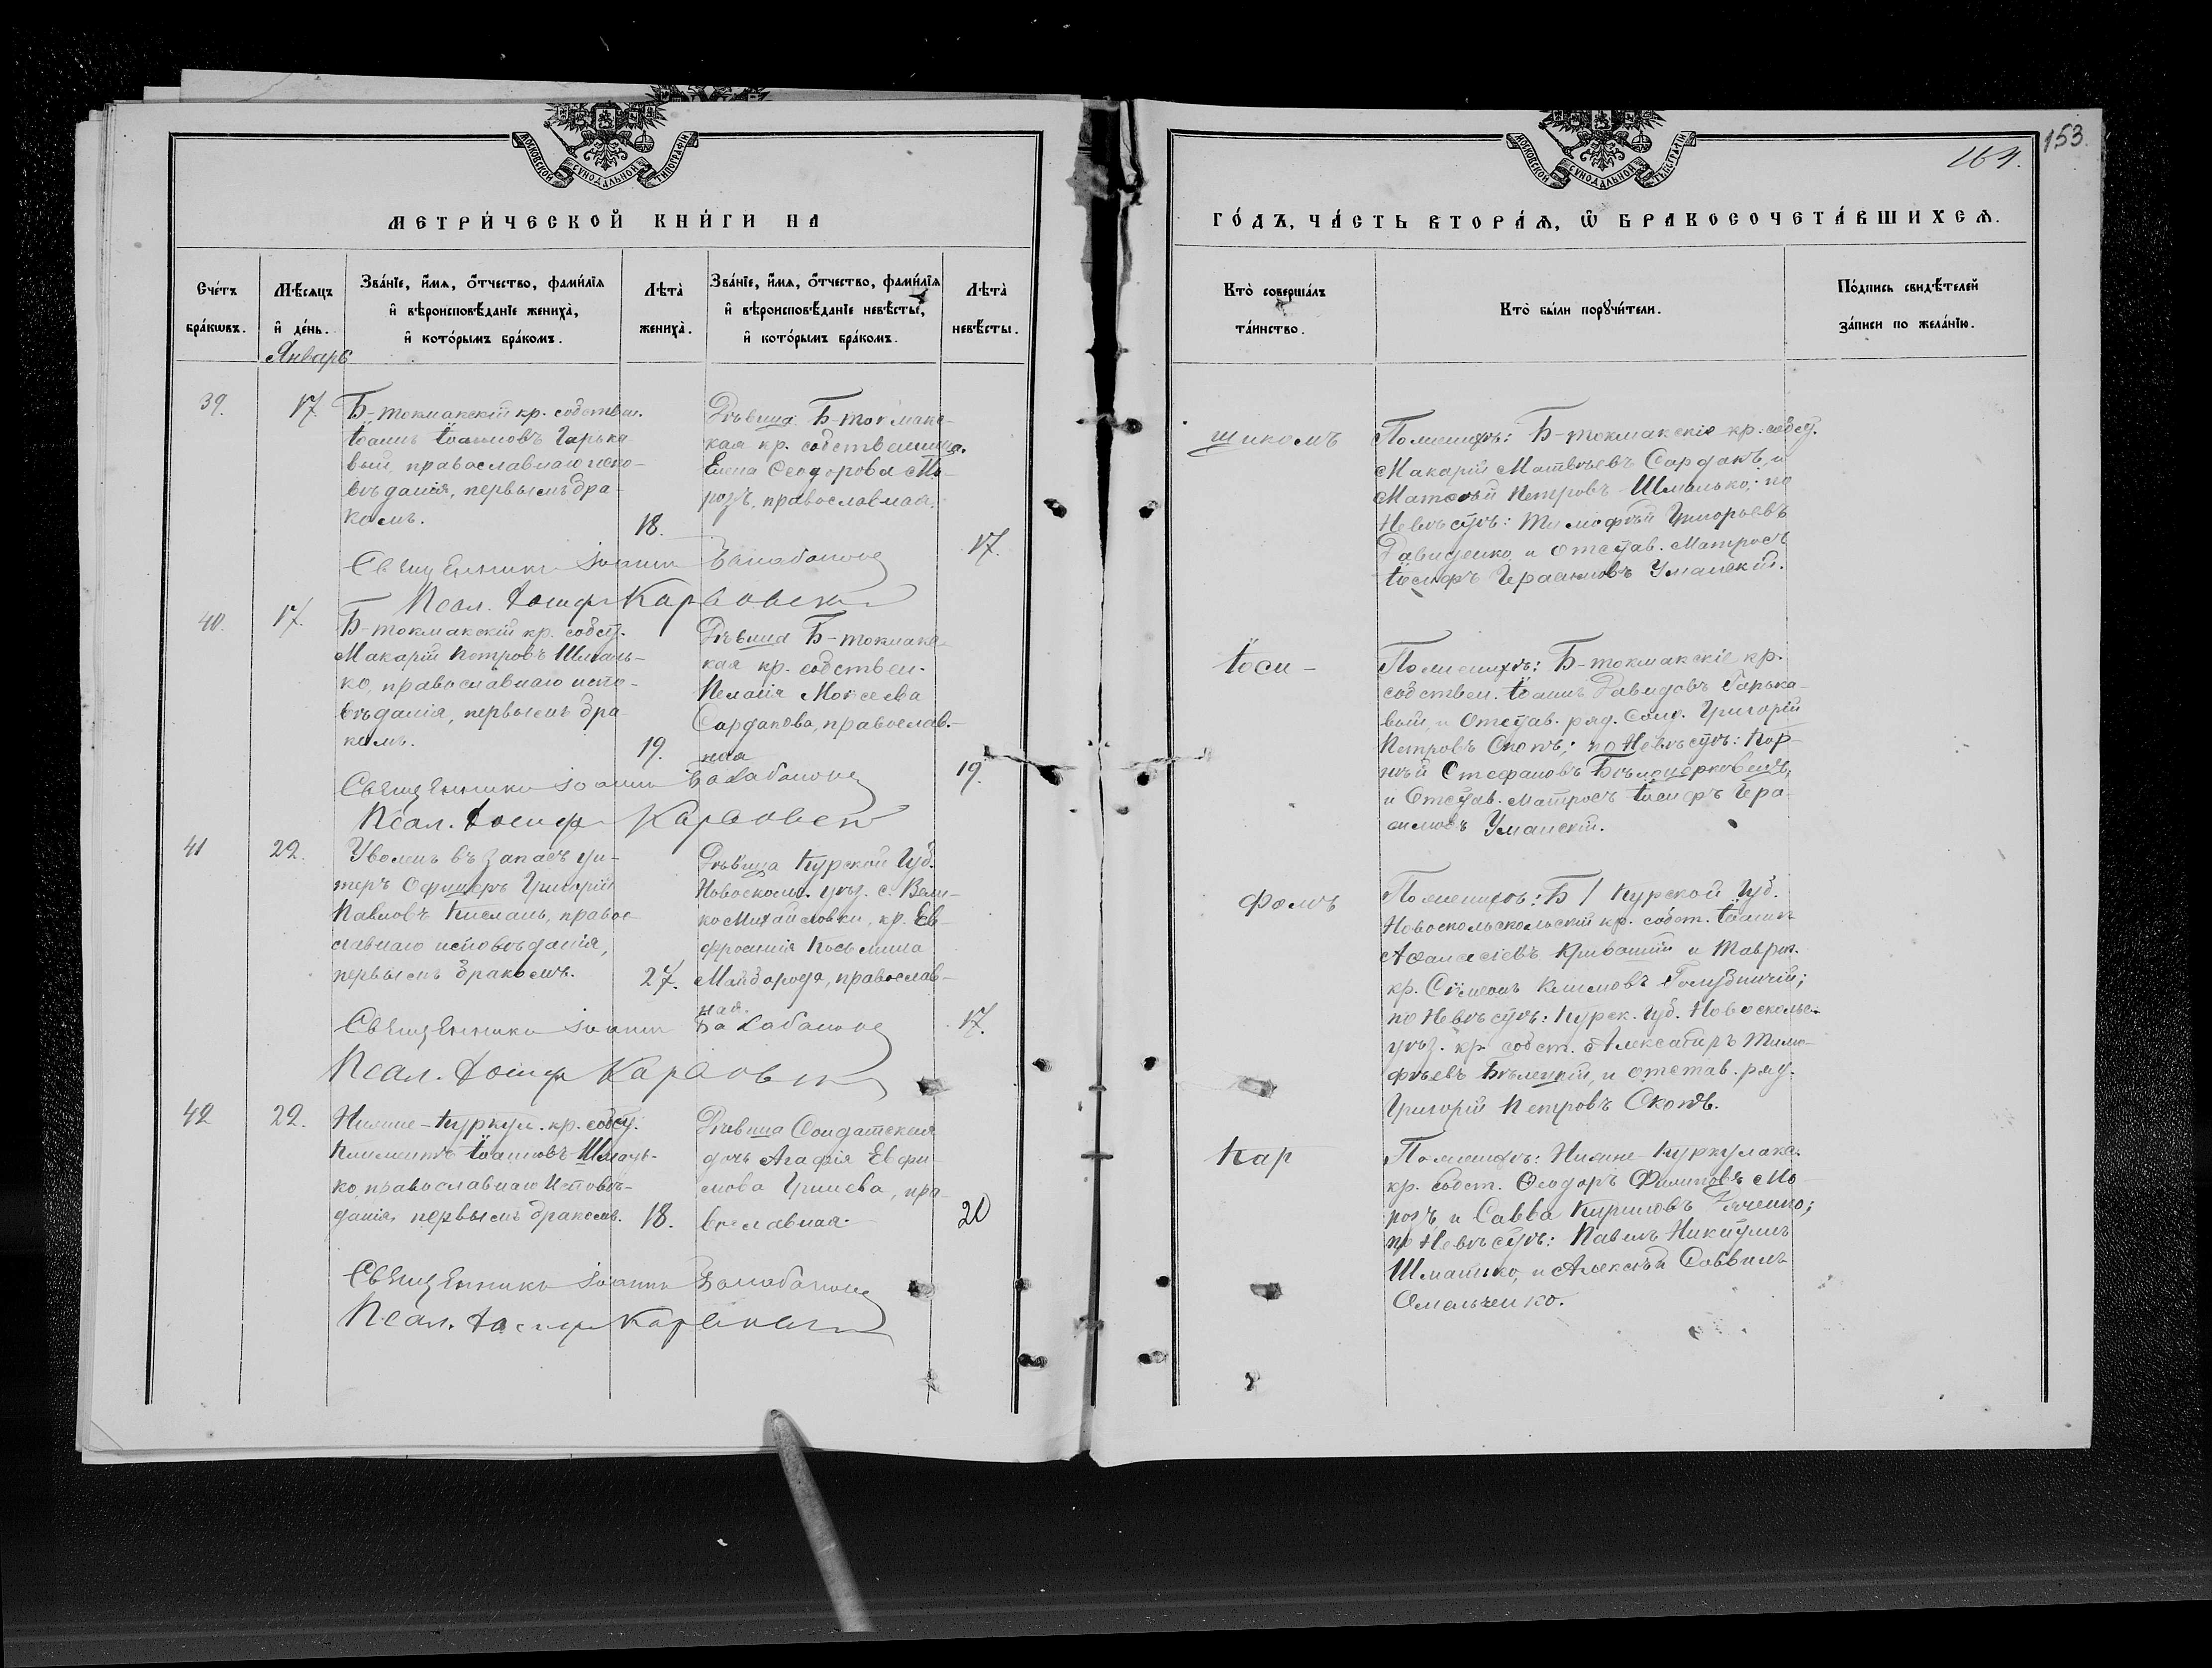 МОСКОВСКОЙ СѴНОДАЛЬНОЙ ТИПОГРАФІИ
МЕТРИ́ЧЕСКОЙ КНИ́ГИ НА
Сче́тъ бра́кѡвъ.
Мѣ́сяцъ и҆ де́нь.
Зва́нїе, и҆́мѧ, ѻ҆́тчество, фами́лїѧ
и҆ вѣроисповѣ́данїе жениха̀,
и҆ кото́рымъ бра́комъ.
Лѣта̀
жениха̀.
Зва́нїе, и҆́мѧ, ѻ҆́тчество, фами́лїѧ
и҆ вѣроисповѣ́данїе невѣ́сты,
и҆ кото́рымъ бра́комъ.
Лѣта̀
невѣ́сты.
Январь
39.
17.
Б-токмакскій кр. собствен.
Іоаннъ Іоанновъ Гарька-
вый, православнаго испо-
вѣданія, первымъ бра-
комъ.
18.
Дѣвица Б-токмакс-
кая кр. собственница.
Елена Ѳеодорова Мо-
розъ, православная.
17.
Священникъ Іоаннъ Балабановъ
Псал. Іосифъ Карповскій
40.
17.
Б-токмакскій кр. собст.
Макарій Петровъ Шмаль-
ко, православнаго испо-
вѣданія, первымъ бра-
комъ.
19.
Дѣвица Б-токмакс-
кая кр. собствен.
Пелагія Моисеева
Сардакова, православ-
ная
19.
Священникъ Іоаннъ Балабановъ
Псал. Іосифъ Карповскій
41
22.
Уволенъ въ запасъ ун-
теръ Офицеръ Григорій
Павловъ Кисланъ, правос-
лавнаго исповѣданія,
первымъ бракомъ.
27.
Дѣвица Курской Губ.
Новоскольс. уѣз. с. Вели-
ко Михайловки, кр. Ев-
фросинія Косьмина
Майборода, православ-
ная.
17.
Священникъ Іоаннъ Балабановъ
Псал. Іосифъ Карповскій
42
22.
Нижне-Куркул. кр. собст.
Климентъ Іоанновъ Шмаль-
ко, православнаго Исповѣ-
данія, первымъ бракомъ.
18.
Дѣвица Солдатская
дочь Агафія Евфи-
мова Гришева, пра-
вославная.
20
Священникъ Іоаннъ Балабановъ
Псал. Іосифъ Карповскій
153.
164.
МОСКОВСКОЙ СѴНОДАЛЬНОЙ ТИПОГРАФІИ
ГО́ДЪ, ЧА́СТЬ ВТОРА́Ѧ, Ѽ БРАКОСОЧЕТА́ВШИХСѦ.
Кто̀ соверша́лъ
та́инство.
Кто̀ бы́ли порꙋчи́тели.
По́дпись свидѣ́телей
за́писи по жела́нїю.
щикомъ
По женихѣ: Б-токмакскіе кр. собст.
Макарій Матвѣевъ Сардакъ, и
Матвѣй Петровъ Шмалько; по
Невѣстѣ: Тимофѣй Григорьевъ
Давиденко и отстав. Матросъ
Іосифъ Герасимовъ Уманскій.
Іоси-
По женихѣ: Б-токмакскіе кр.
собствен. Іоаннъ Давидовъ Гарька-
вый, и Отстав. ряд. Солд. Григорій
Петровъ Скокъ; по Невѣстѣ: Кор-
нѣй Стефановъ Бѣлоцерковецъ,
и Отстав. Матросъ Іосифъ Гера-
симовъ Уманскій.
фомъ
По женихѣ: Б/ Курской Губ.
Новоскольскольскій кр. собст. Іоаннъ
Аѳанасіевъ Кривошій и Таврич.
кр. Симеонъ Климовъ Голубничій;
по Невѣстѣ: Курск. Губ. Новоскольс.
уѣз. кр. собст. Александръ Тимо-
фѣевъ Бѣлецкій, и отстав. ряд.
Григорій Петровъ Скокъ.
Кар
По женихѣ: Нижне-Куркулакс.
кр. собст. Ѳеодоръ Филиповъ Мо-
розъ и Савва Кириловъ
по Невѣстѣ: Павелъ Никитинъ
Шмалько, и Алексѣй Саввинъ
Омельченко.